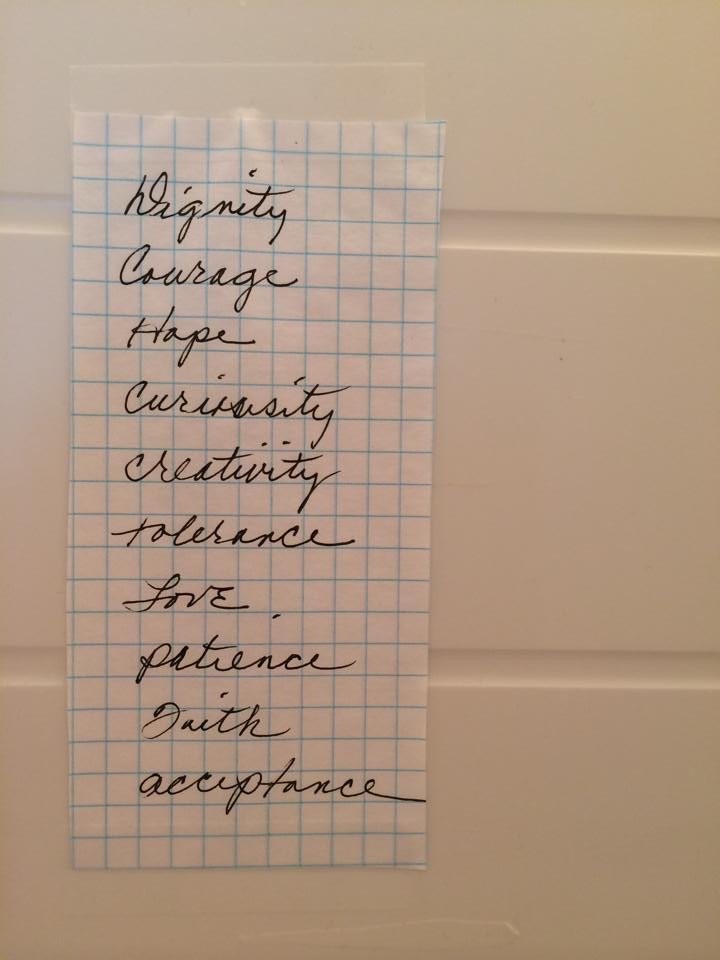 Dignity
Courage
Hope
Curiosity
Creativity
tolerance
Love
patience
Faith
acceptance